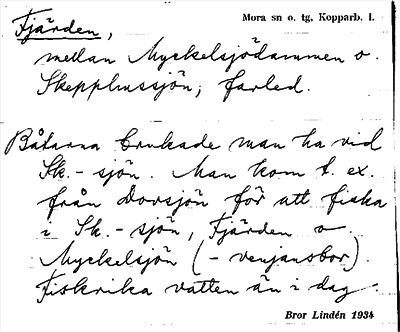 Fjärden, Mora sn o. tg. Kopparb. l.
mellan Myckelsjödammen o.
Skepphussjön; farled.
Båtarna brukade man ha vid
Sk.-sjön. Man kom t. ex.
från Dovsjön för att fiska
i Sk.-sjön, Fjärden o
Myckelsjön (- venjansbor).
Fiskrika vatten än i dag.
Bror Lindén 1934